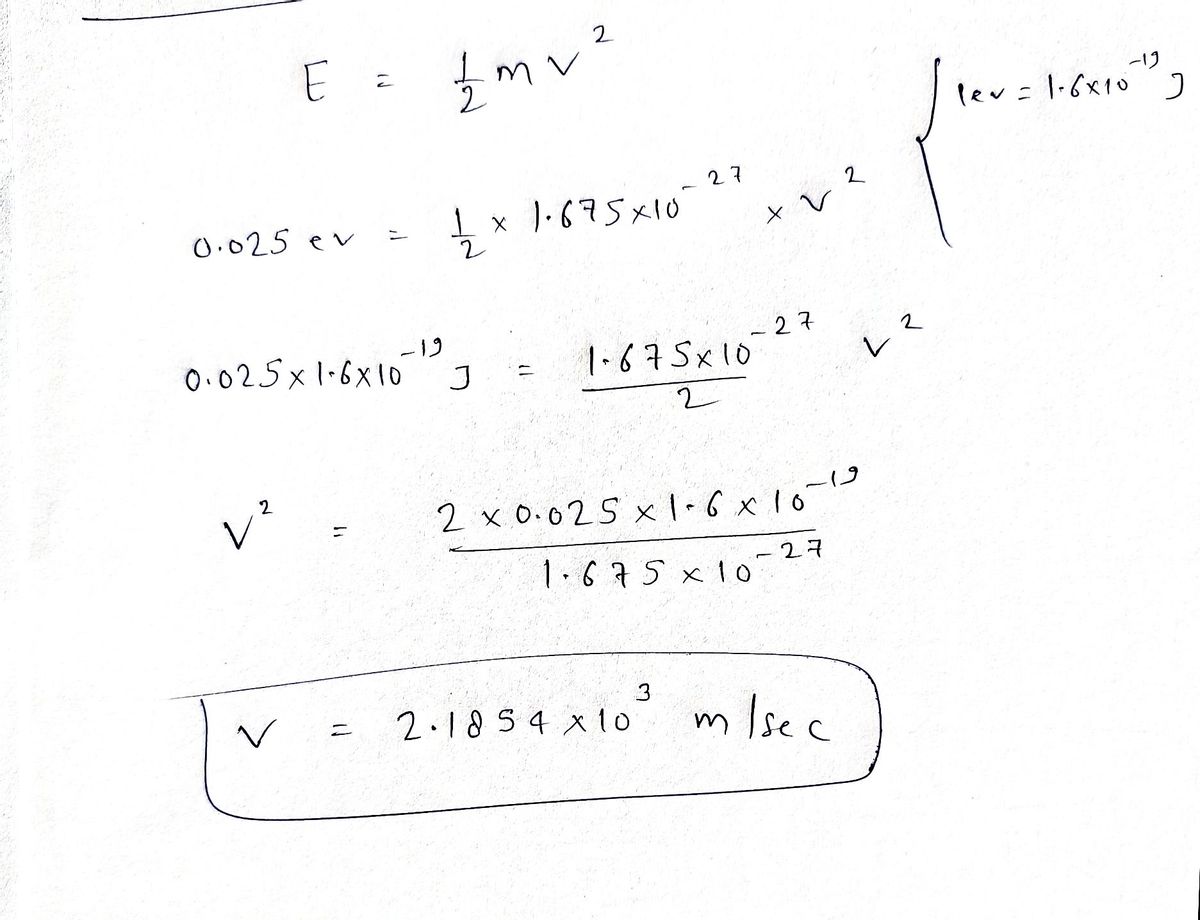 E = 1/2 m v²
{ 1ev = 1.6×10⁻¹⁹ J
0.025 ev = 1/2 × 1.675×10⁻²⁷ × v²
0.025×1.6×10⁻¹⁹ J = 1.675×10⁻²⁷/2 v²
v² = 2 × 0.025 × 1.6 × 10⁻¹⁹ / 1.675 × 10⁻²⁷
v = 2.1854 ×10³ m/sec